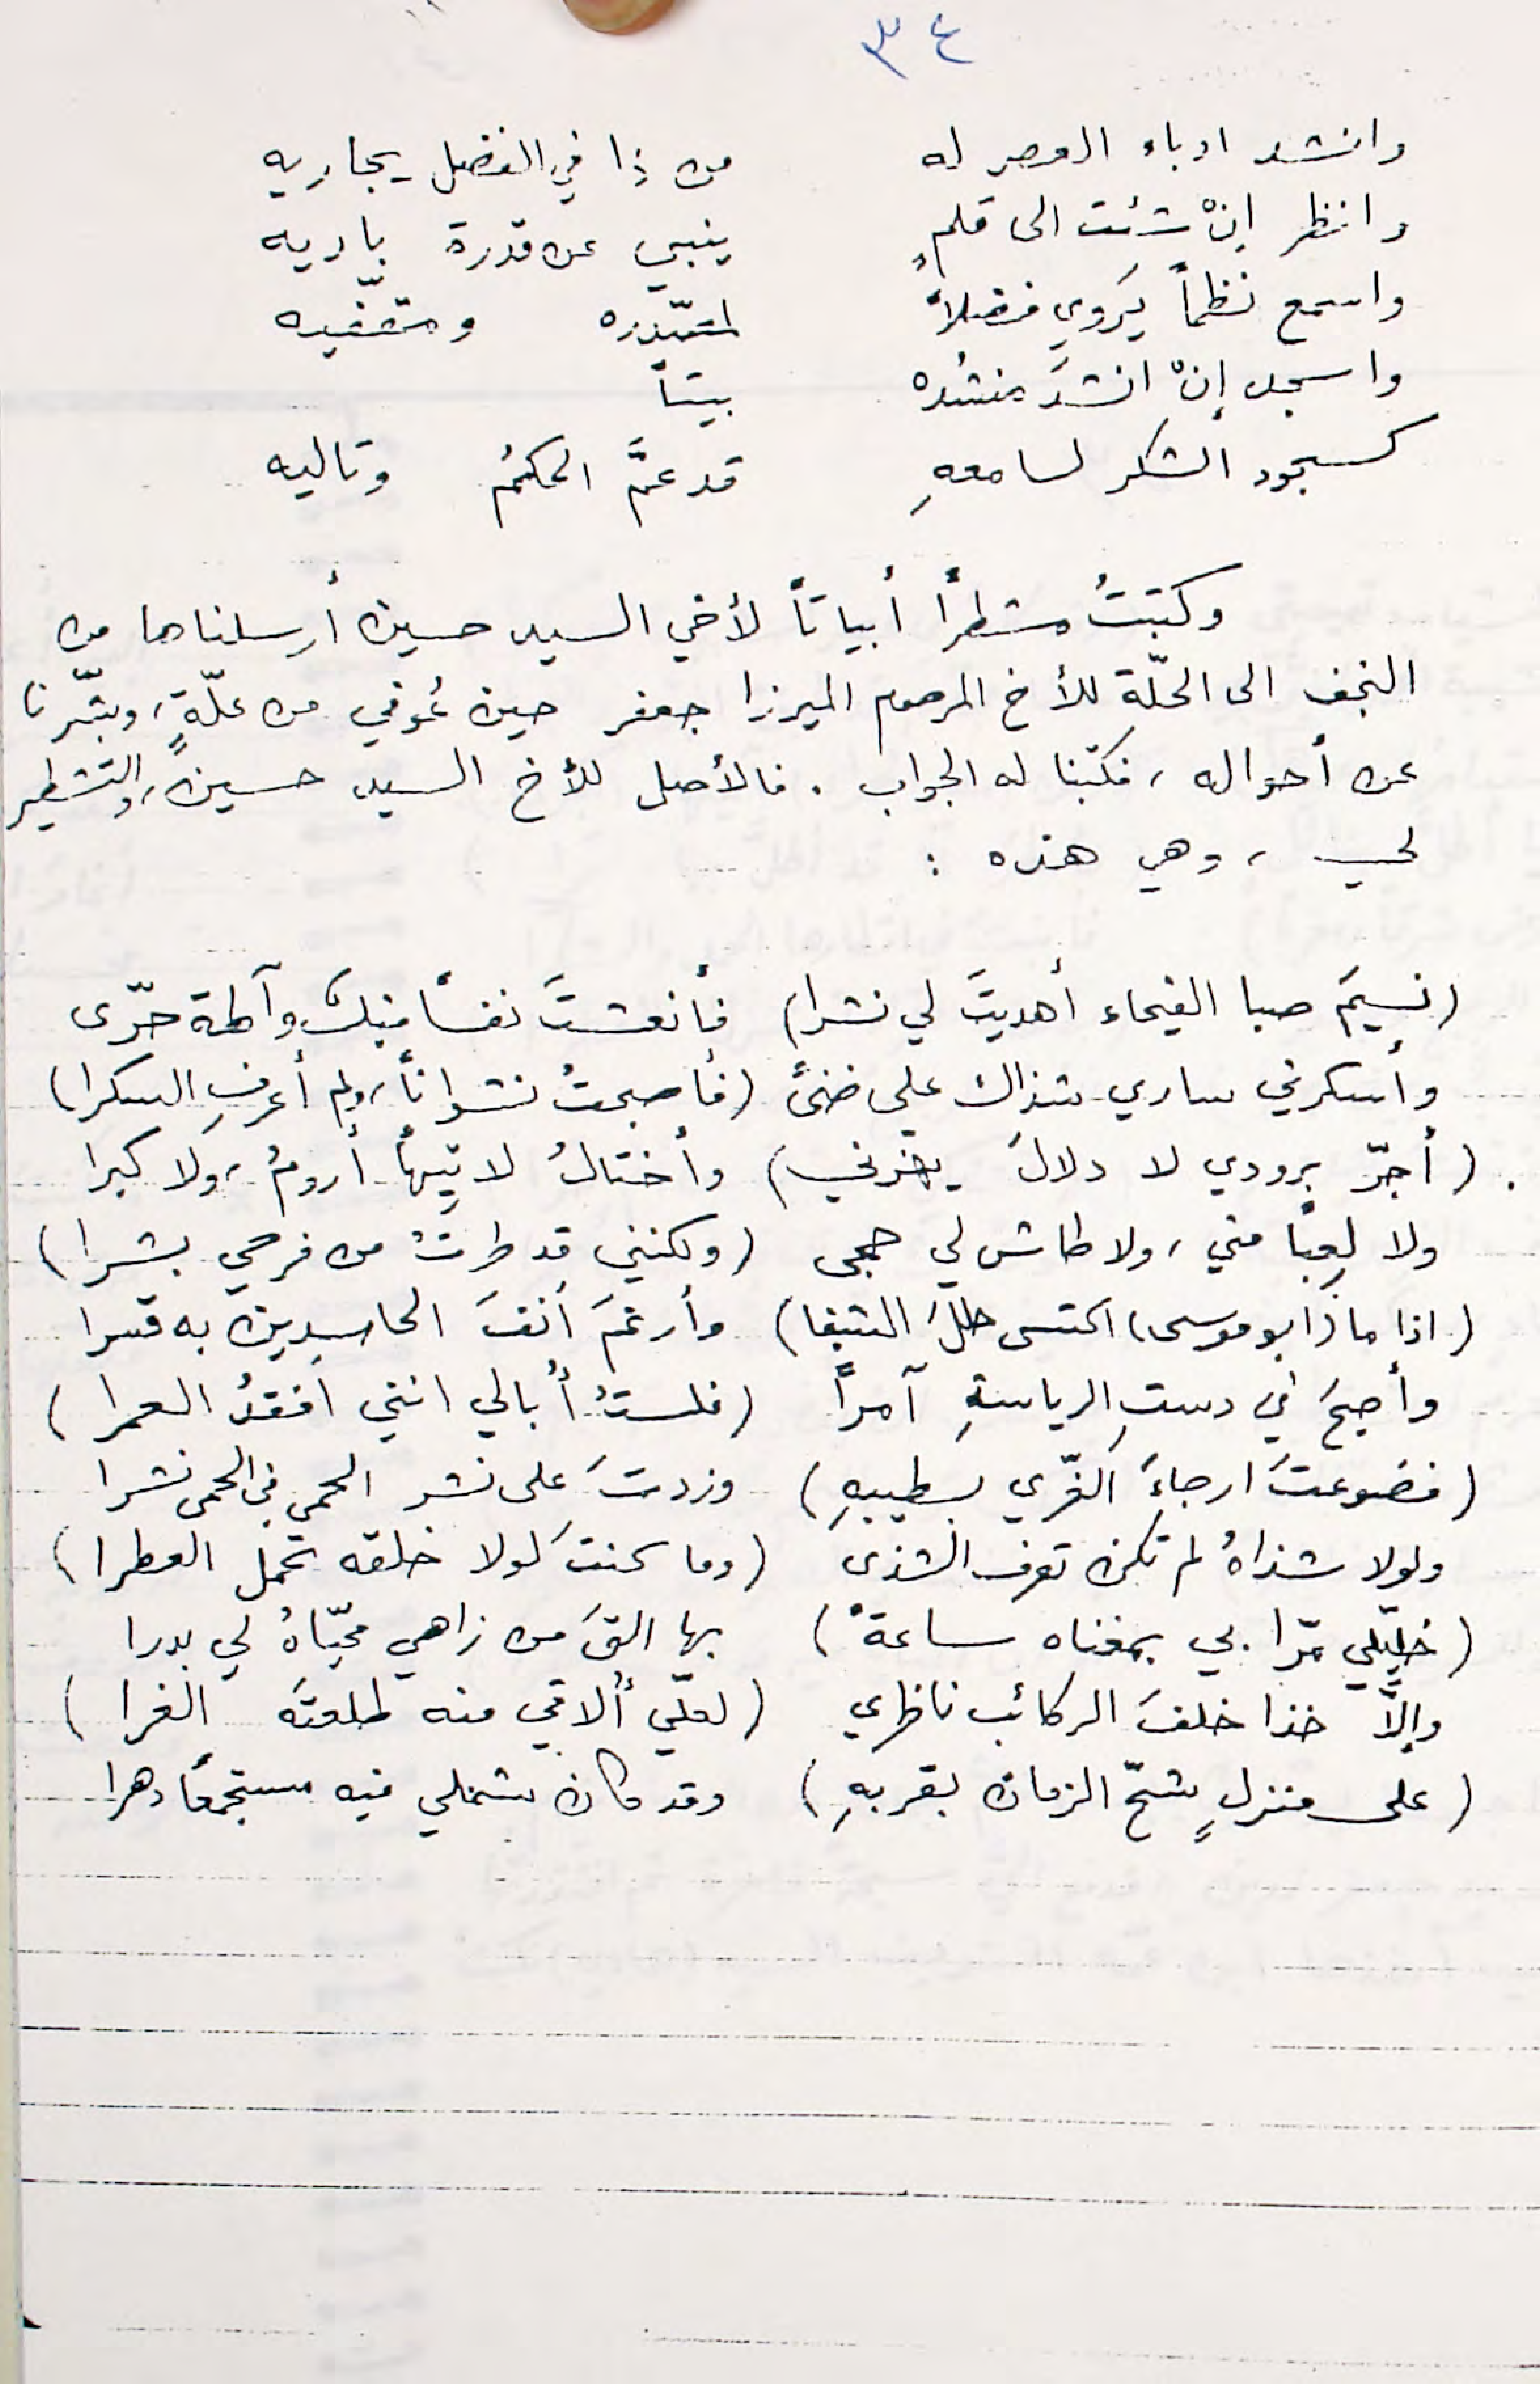 ٣٤
وانشد ادباء العصر له من ذا في الفضل يجاريه
وانظر إنْ شئت الى قلمٍ ينبي عن قدرة باريه
واسمع نظماً يَروي فضلاً ومقفّيه
واسجد إنْ انشدَ منشده بيتاً
كسجود الشكر لسامعهِ قد عمَّ الحكمُ وتاليه
وكتبتُ مشطراً أبياتاً لأخي السيد حسين أرسلناها من
النجف الى الحلّة للأخ المرحوم الميرزا جعفر حين عُوفي من علّةٍ، وبشّرنا
عن أحواله، فكتبنا له الجواب. فالأصل للأخ السيد حسين، والتشطير
لي، وهي هذه:
(نسيمَ صبا الفيحاء أهديتَ لي نشرا) فأنعشتَ نفساً منكَ وآلمة حرّى
وأسكرني ساري شذاك على ضنىً (فأصبحتُ نشواناً، ولم أعرفِ السكرا)
(أجرّ برودي لا دلالَ يغرني) وأختالُ لا تِيهاً أرومُ، ولا كبرا
ولا لعِباً مني، ولا طاش لي حجى (ولكنني قد طرتُ من فرحي بشرا)
(اذا ما (ابو موسى) اكتسى حللَ الشفا) وأرغمَ أنفَ الحاسدين به قسرا
وأصبحَ في دستِ الرياسةِ آمراً (فلستُ أُبالي انني افقدُ العمرا)
(فضوعتَ ارجاءَ الغّري بطيبهِ) وزدتَ على نشر الحمى في الحمى نشرا
ولولا شذاهُ لم تكن تعرف الشذى (وما كنتَ لولا خلقه تحمل العطرا)
(خليّلي مرّا بي بمغناه ساعةً) بها القَ من زاهي محيّاهُ لي بدرا
وإلاَّ خذا خلفَ الركائب ناظري (لعلّي أُلاقي منه طلعتَه الغرا)
(على منزلٍ شحّ الزمان بقربهِ) وقد كان شملي فيه مستجمعاً دهرا